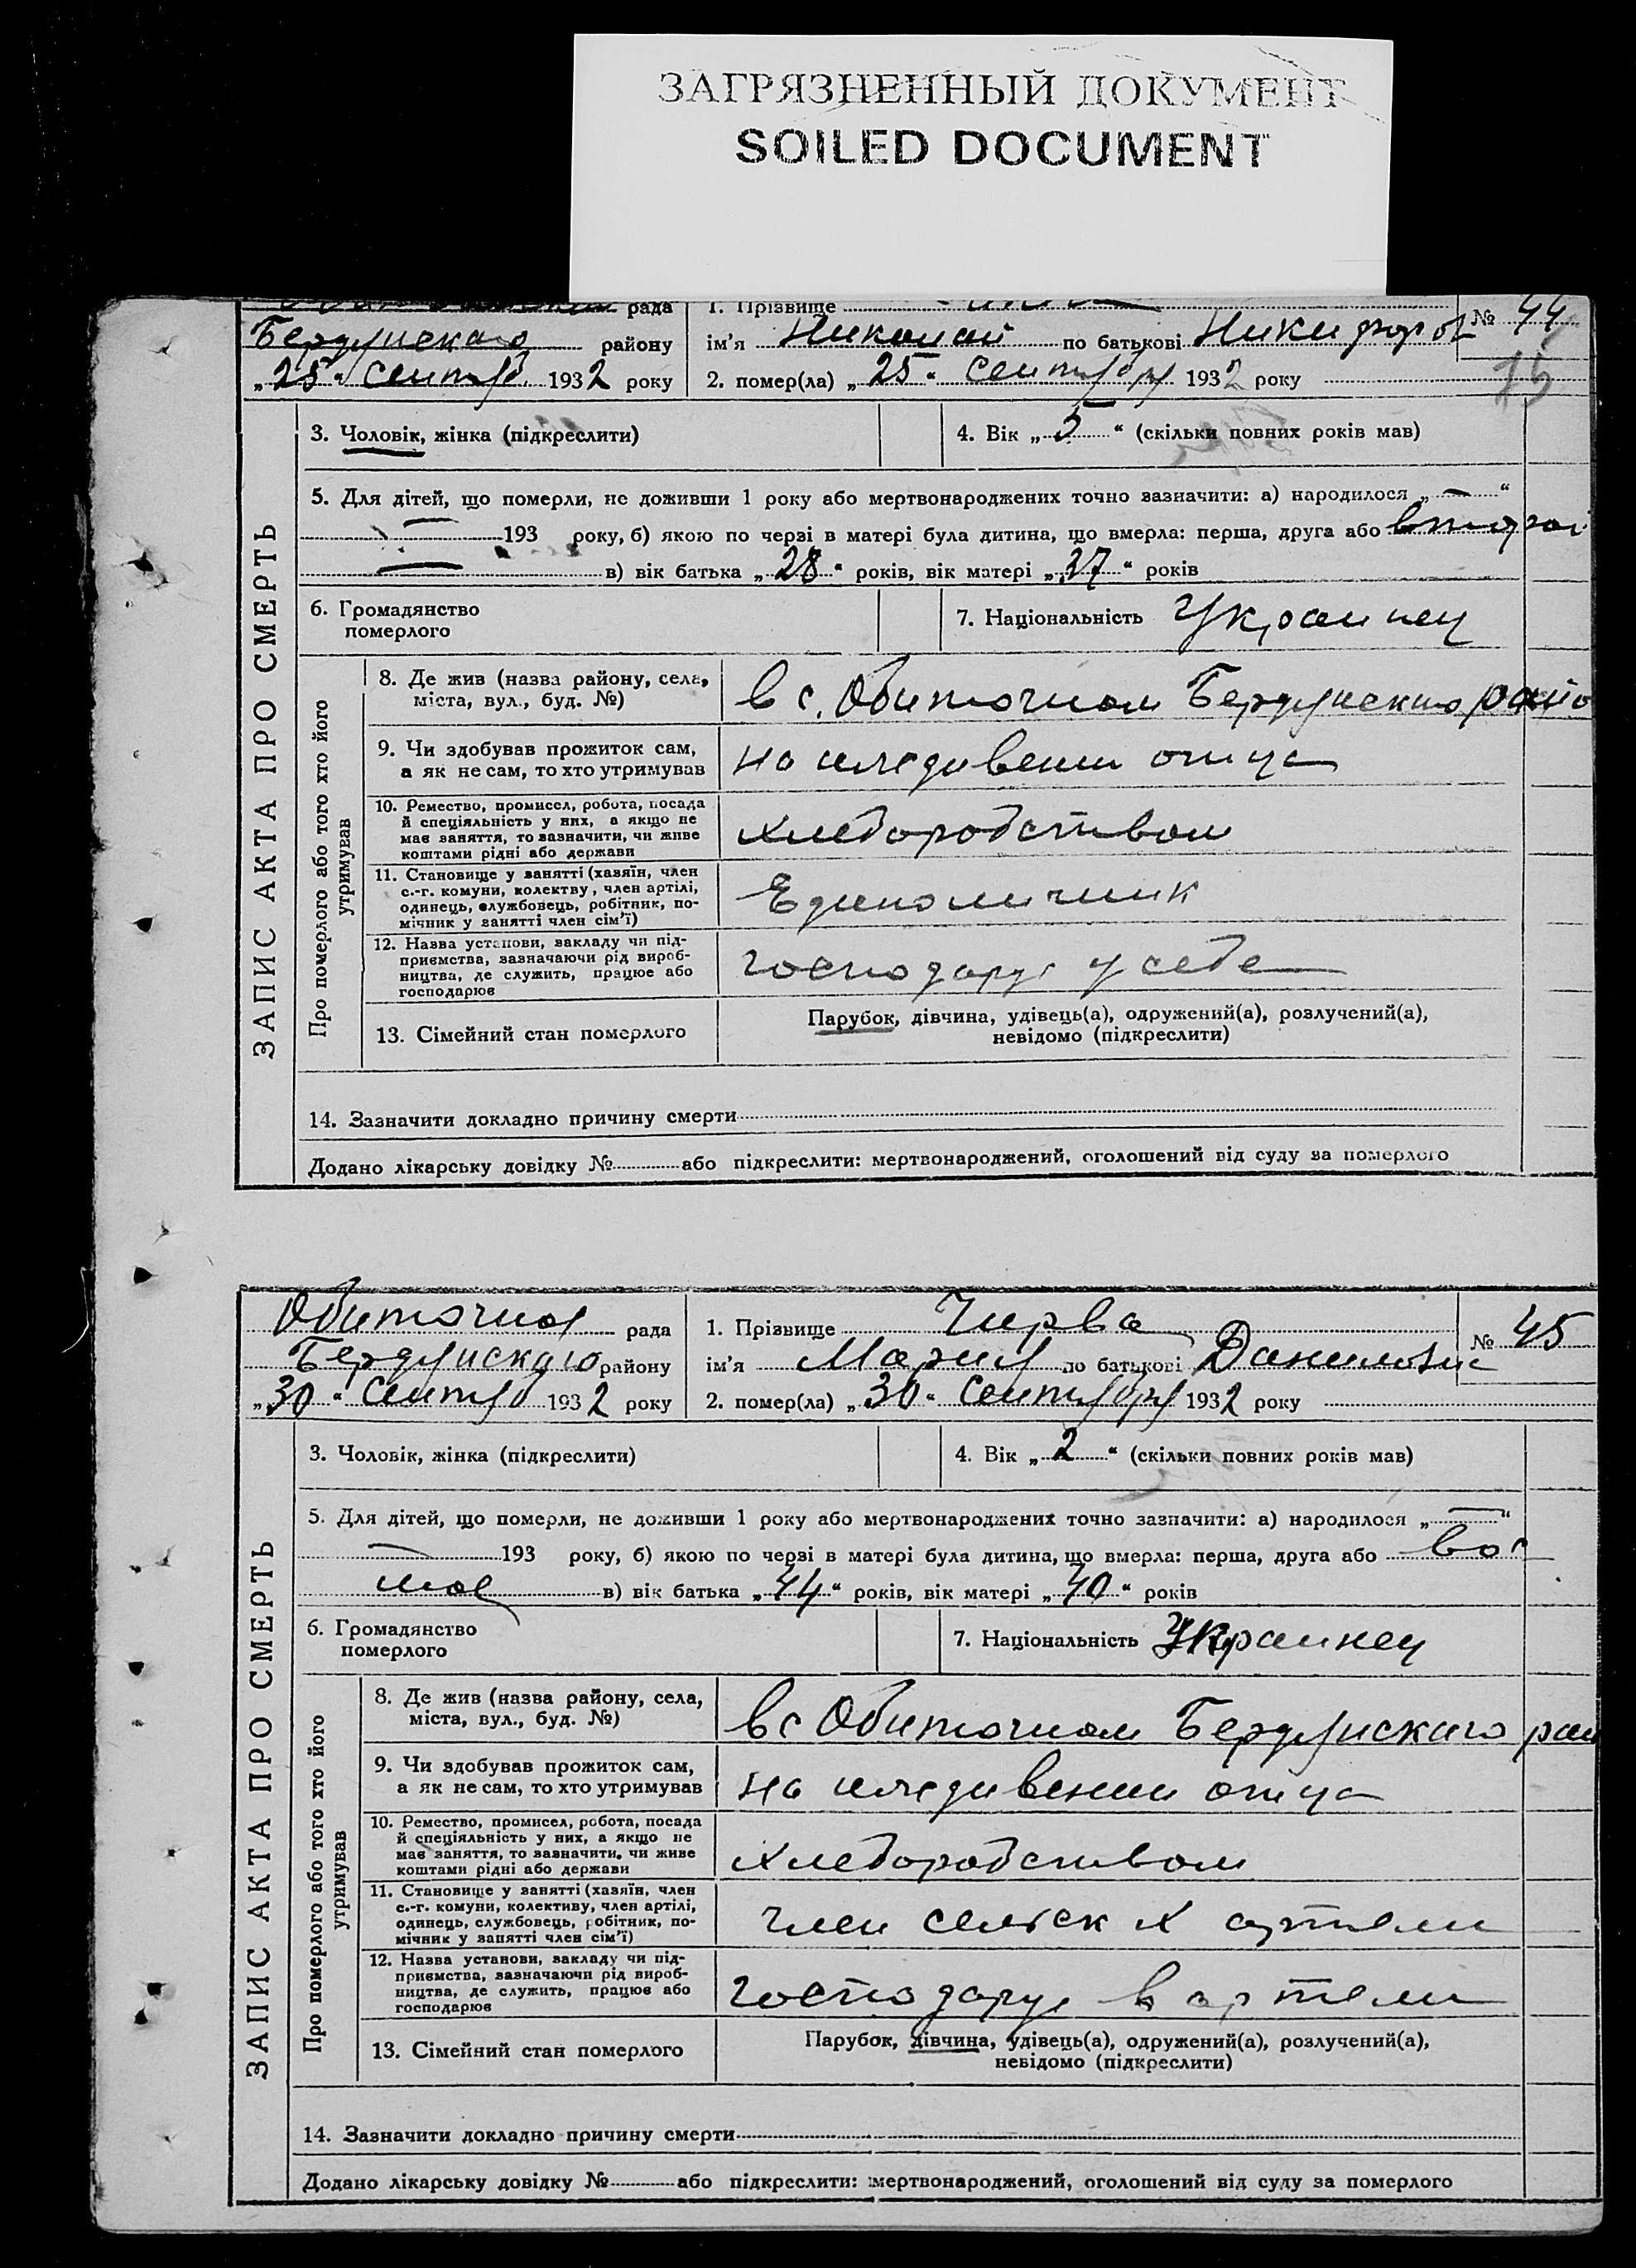 ЗАГРЯЗНЕННЫЙ ДОКУМЕНТ
SOILED DOCUMENT
рада 1. Прізвище № 44
Бердянскаго району ім'я Николай по батькові Никифоров
„25“ Сентяб. 1932 року 2. помер(ла) „25“ Сентября 1932 року 15
ЗАПИС АКТА ПРО СМЕРТЬ
3. Чоловік, жінка (підкреслити) 4. Вік „5“ (скільки повних років мав)
5. Для дітей, що померли, не доживши 1 року або мертвонароджених точно зазначити: а) народилося „—“
— 193 року, б) якою по черзі в матері була дитина, що вмерла: перша, друга або второй
— в) вік батька „28“ років, вік матері „27“ років
6. Громадянство
померлого
7. Національність Украинец
Про померлого або того хто його
утримував
8. Де жив (назва району, села,
міста, вул., буд. №)
в с. Обиточном Бердянскаго райо
9. Чи здобував прожиток сам,
а як не сам, то хто утримував
на иждивении отца
10. Ремество, промисел, робота, посада
й спеціяльність у них, а якщо не
має заняття, то зазначити, чи живе
коштами рідні або держави
хлебородством
11. Становище у занятті (хазяїн, член
с.-г. комуни, колективу, член артілі,
одинець, службовець, робітник, по-
мічник у занятті член сім'ї)
Единоличник
12. Назва установи, закладу чи під-
приємства, зазначаючи рід вироб-
ництва, де служить, працює або
господарює
господарує у себе
13. Сімейний стан померлого
Парубок, дівчина, удівець(а), одружений(а), розлучений(а),
невідомо (підкреслити)
14. Зазначити докладно причину смерти
Додано лікарську довідку № або підкреслити: мертвонароджений, оголошений від суду за померлого
Обиточная рада 1. Прізвище Чирва № 45
Бердянскаго району ім'я Мария по батькові Даниловна
„30“ Сентяб 1932 року 2. помер(ла) „30“ Сентября 1932 року
ЗАПИС АКТА ПРО СМЕРТЬ
3. Чоловік, жінка (підкреслити) 4. Вік „2“ (скільки повних років мав)
5. Для дітей, що померли, не доживши 1 року або мертвонароджених точно зазначити: а) народилося „—“
— 193 року, б) якою по черзі в матері була дитина, що вмерла: перша, друга або вось
мое в) вік батька „44“ років, вік матері „40“ років
6. Громадянство
померлого
7. Національність Украинец
Про померлого або того хто його
утримував
8. Де жив (назва району, села,
міста, вул., буд. №)
в с Обиточном Бердянскаго рай
9. Чи здобував прожиток сам,
а як не сам, то хто утримував
на иждивении отца
10. Ремество, промисел, робота, посада
й спеціяльність у них, а якщо не
має заняття, то зазначити, чи живе
коштами рідні або держави
хлебородством
11. Становище у занятті (хазяїн, член
с.-г. комуни, колективу, член артілі,
одинець, службовець, робітник, по-
мічник у занятті член сім'ї)
член сельск х артели
12. Назва установи, закладу чи під-
приємства, зазначаючи рід вироб-
ництва, де служить, працює або
господарює
господарує в артели
13. Сімейний стан померлого
Парубок, дівчина, удівець(а), одружений(а), розлучений(а),
невідомо (підкреслити)
14. Зазначити докладно причину смерти
Додано лікарську довідку № або підкреслити: мертвонароджений, оголошений від суду за померлого